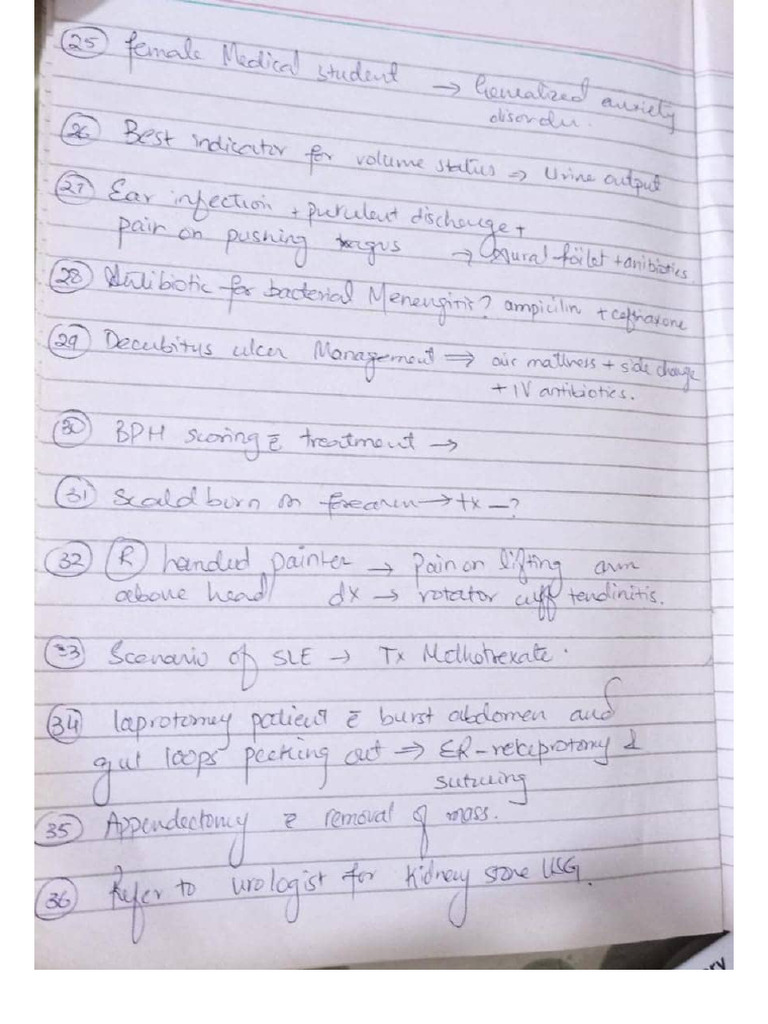 25 female Medical student → Genealized anxiety
disorder.
26 Best indicator for volume status ⇒ Urine output
27 Ear infection + purulent discharge +
pain on pushing tragus → Aural toilet + anibiotics
28 Antibiotic for bacterial Menengitis? ampicilin + ceftriaxone
29 Decubitus ulcer Management ⇒ air mattress + side change
+ IV antibiotics.
30 BPH scoring c̄ treatment →
31 Scald burn on forearm → tx —?
32 (R) handed painter → Pain on lifting arm
above head dx → rotator cuff tendinitis.
33 Scenario of SLE → Tx Methotrexate.
34 laprotomy patient c̄ burst abdomen and
gut loops peeking out ⇒ ER-relaprotomy &
suturing
35 Appendectomy c̄ removal of mass.
36 Refer to urologist for kidney stone USG.